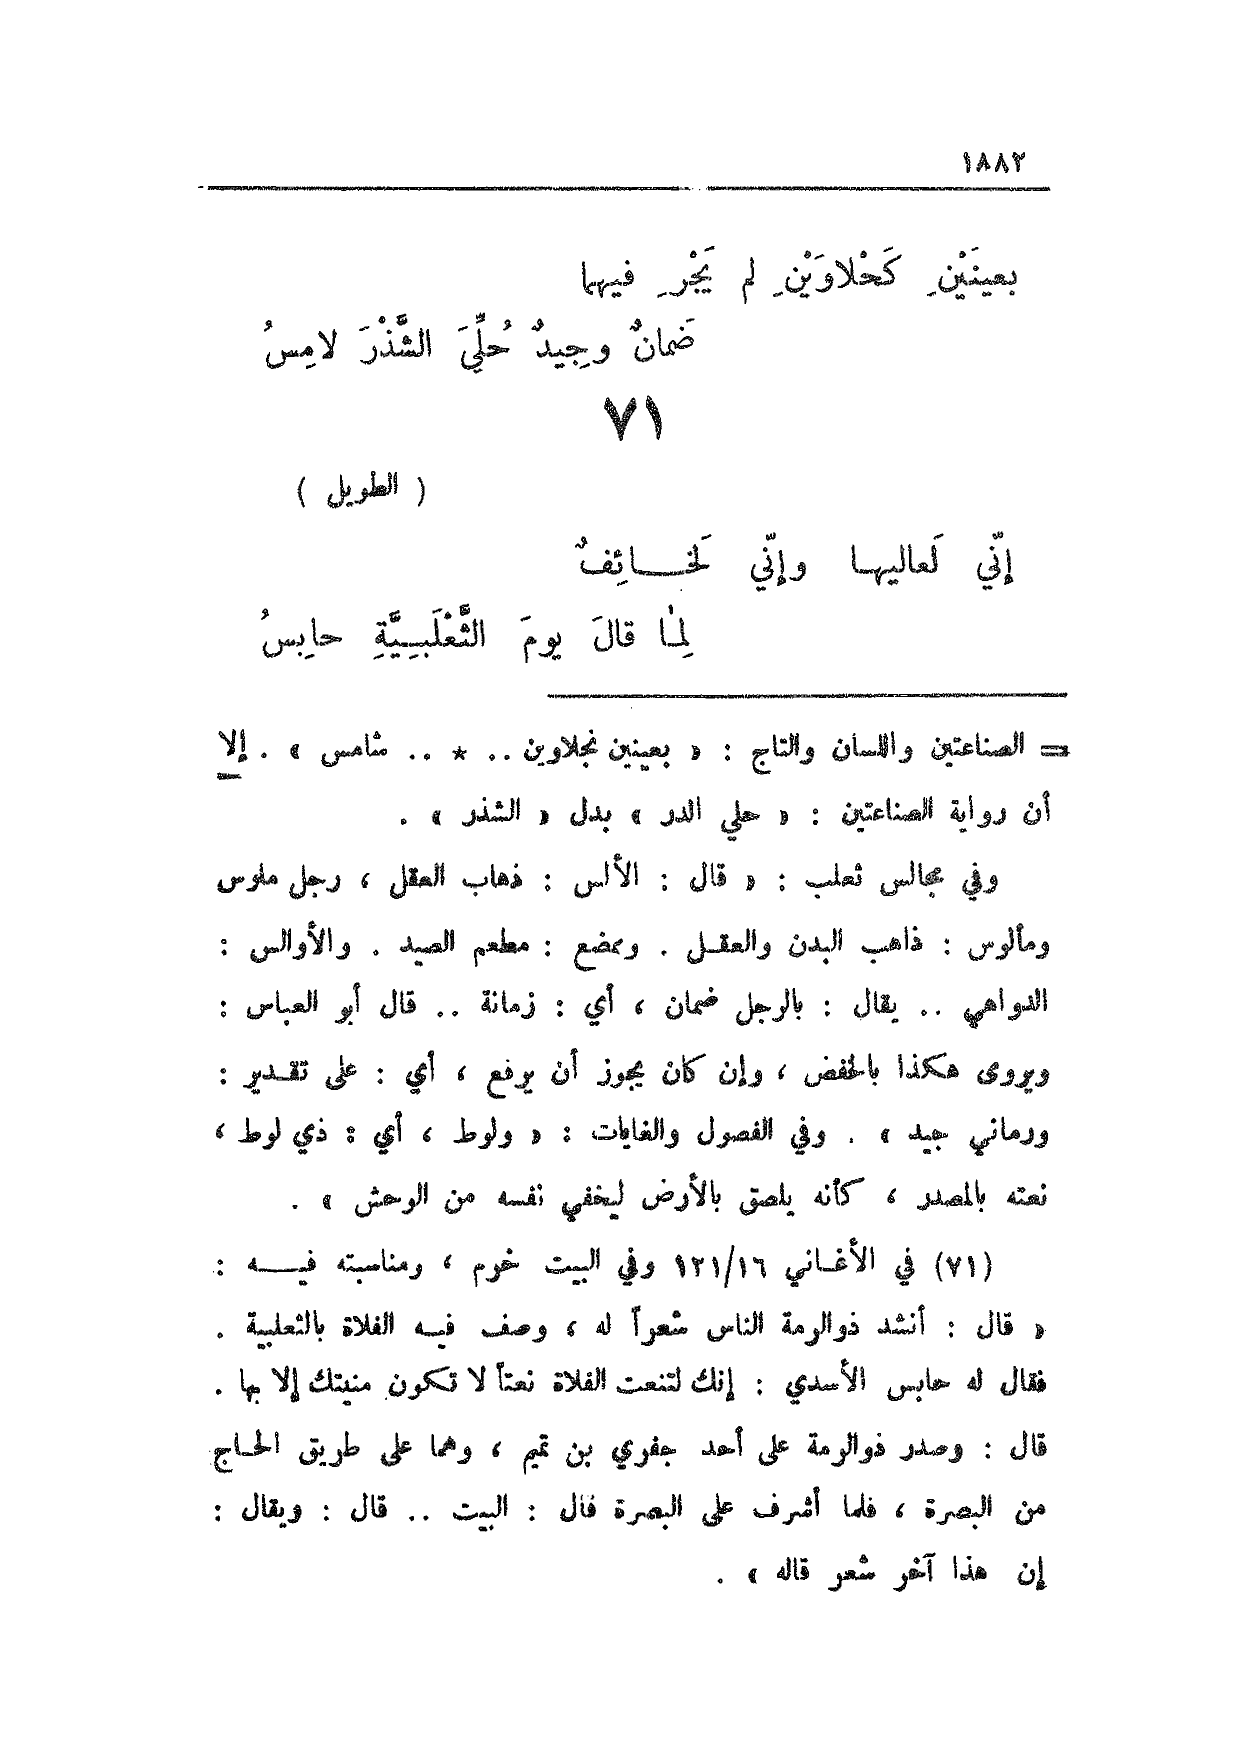 ١٨٨٢
بعينَيْنِ كَحْلاوَيْنِ لم يَجْرِ فيهما
ضَمانٌ وجِيدٌ حُلِّيَ الشَّذْرَ لامِسُ
٧١
( الطويل )
إنّي لَعاليها وإنّي لَخائِفٌ
لِما قالَ يومَ الثَّعْلَبِيَّةِ حابِسُ
= الصناعتين واللسان والتاج : « بعينين نجلاوين .. * .. شامس » . إلا
أن رواية الصناعتين : « حلي الدر » بدل « الشذر » .
وفي مجالس ثعلب : « قال : الألس : ذهاب العقل ، رجل ملوس
ومألوس : ذاهب البدن والعقل . وممضع : مطعم الصيد . والأوالس :
الدواهي .. يقال : بالرجل ضمان ، أي : زمانة .. قال أبو العباس :
ويروى هكذا بالخفض ، وإن كان يجوز أن يرفع ، أي : على تقدير :
ورماني جيد » . وفي الفصول والغايات : « ولوط ، أي : ذي لوط ،
نعته بالمصدر ، كأنه يلصق بالأرض ليخفي نفسه من الوحش » .
(٧١) في الأغاني ١٢١/١٦ وفي البيت خرم ، ومناسبته فيه :
« قال : أنشد ذوالرمة الناس شعراً له ، وصف فيه الفلاة بالثعلبية .
فقال له حابس الأسدي : إنك لتنعت الفلاة نعتاً لا تكون منيتك إلا بها .
قال : وصدر ذوالرمة على أحد جفري بن تميم ، وهما على طريق الحاج
من البصرة ، فلما أشرف على البصرة قال : البيت .. قال : ويقال :
إن هذا آخر شعر قاله » .